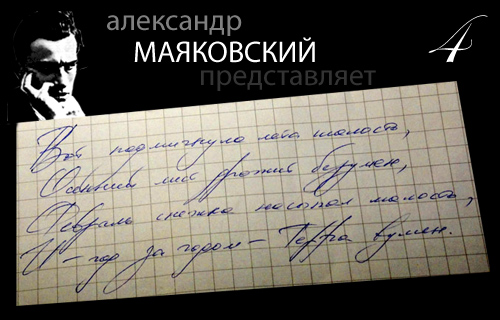 александр
МАЯКОВСКИЙ
представляет
4
Вот подмигнула лета шалость,
Осенний лист дрожит безумен,
Февраль снежка насыпал малость,
И - год за годом - Терра вумен.